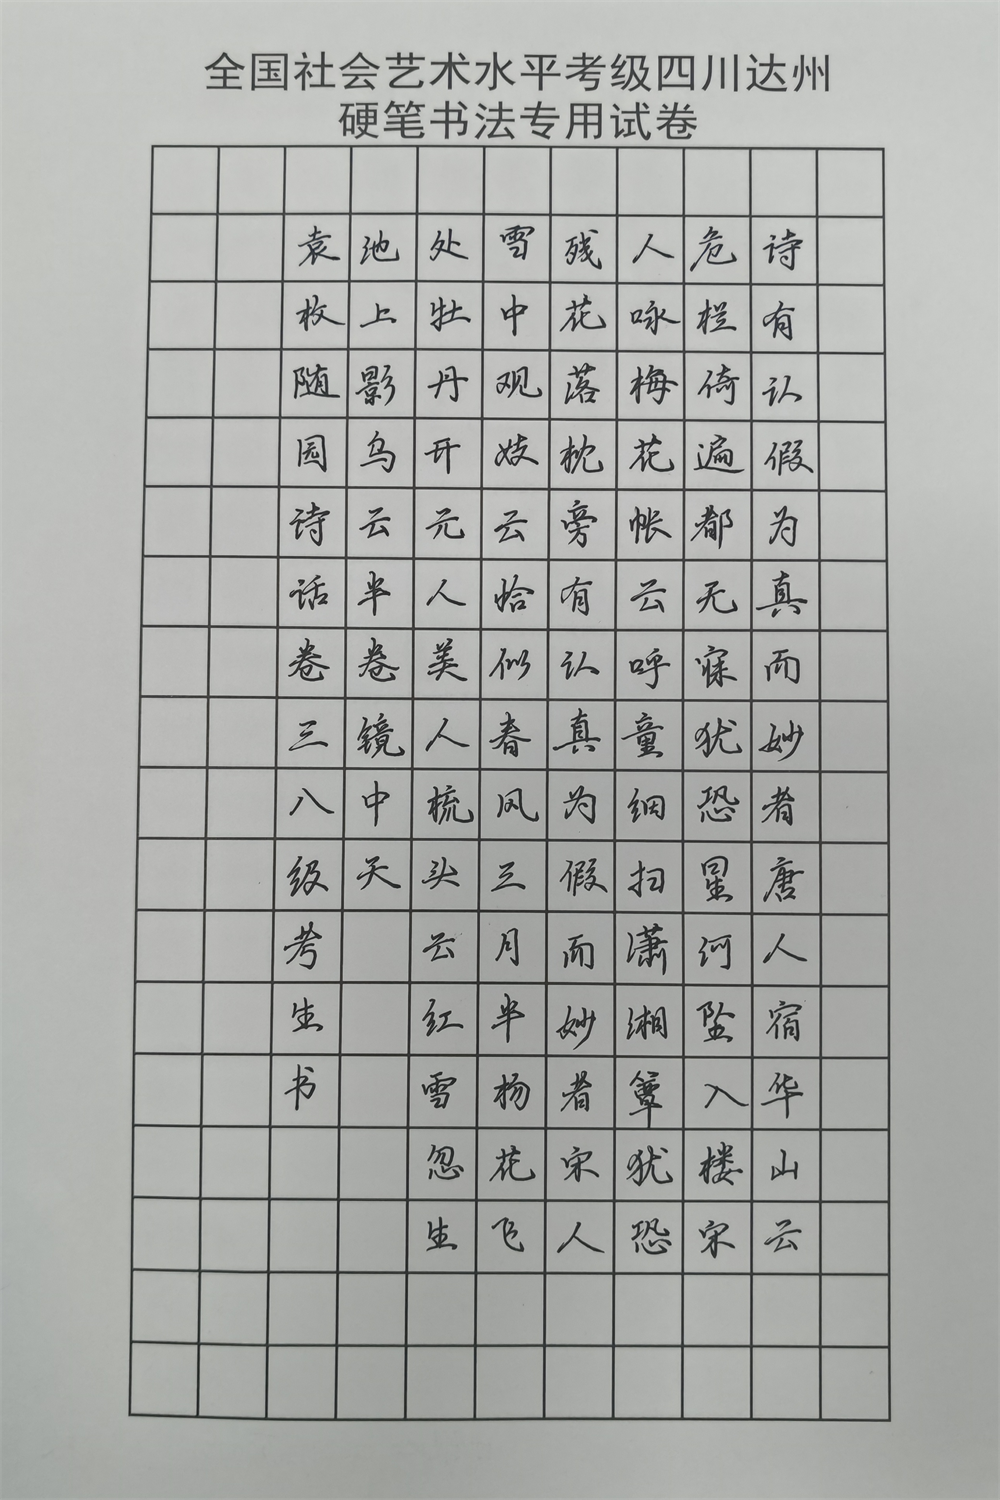 全国社会艺术水平考级四川达州
硬笔书法专用试卷
诗有认假为真而妙者唐人宿华山云
危栏倚遍都无寐犹恐星河坠入楼宋
人咏梅花帐云呼童细扫潇湘簟犹恐
残花落枕旁有认真为假而妙者宋人
雪中观妓云恰似春风三月半杨花飞
处牡丹开元人美人梳头云红雪忽生
池上影乌云半卷镜中天
袁枚随园诗话卷三八级考生书